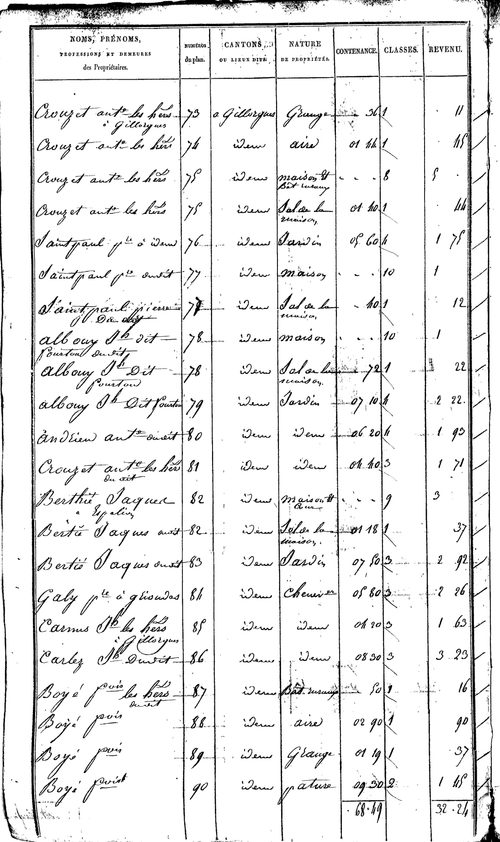 NOMS, PRÉNOMS, PROFESSIONS ET DEMEURES des Propriétaires. NUMÉROS du plan. CANTONS OU LIEUX DITS. NATURE DE PROPRIÉTÉS. CONTENANCE. CLASSES. REVENU.
Crouzet ant.ne les hérs 73 a Gillorgues Grange 36 1 11
à Gillorgues
Crouzet ant.ne les hérs 74 idem aire 01 44 1 45
Crouzet ant.ne les hérs 75 idem maison et 8 5
Bât. rural
Crouzet ant.ne les hérs 75 idem Sol de la 01 40 1 44
maison
Saintpaul p.re à idem 76 idem Jardin 05 60 4 1 75
Saintpaul p.re dudit 77 idem maison 10 1
Saintpaul pierre 77 idem Sol de la 40 1 12
Dudit maison
albouy Jh dit 78 idem maison 10 1
fourton dudit
albouy Jh Dit 78 idem Sol de la 72 1 22
fourton maison
albouy Jh Dit fourton 79 idem Jardin 07 10 4 2 22
andrieu ant.ne dudit 80 idem idem 06 20 4 1 93
Crouzet ant.ne les hérs 81 idem idem 04 40 3 1 71
dudit
Berthié Jaques 82 idem maison et 9 3
à Espalion aire
Bertié Jaques dudit 82 idem Sol de la 01 18 1 37
maison
Bertié Jaques dudit 83 idem Jardin 07 50 3 2 92
Gaby p.re à gircoudas 84 idem Chenevier 05 80 3 2 26
Carnus Jh les hérs 85 idem idem 04 20 3 1 63
à Gillorgues
Carlez Jh Dudit 86 idem idem 08 30 3 3 23
Boyé fcois les hérs 87 idem Bât. rural 50 1 16
dudit
Boyé fcois 88 idem aire 02 90 1 90
Boyé fcois 89 idem Grange 01 19 1 37
Boyé fcois 90 idem pature 09 30 2 1 45
68.49 32.24